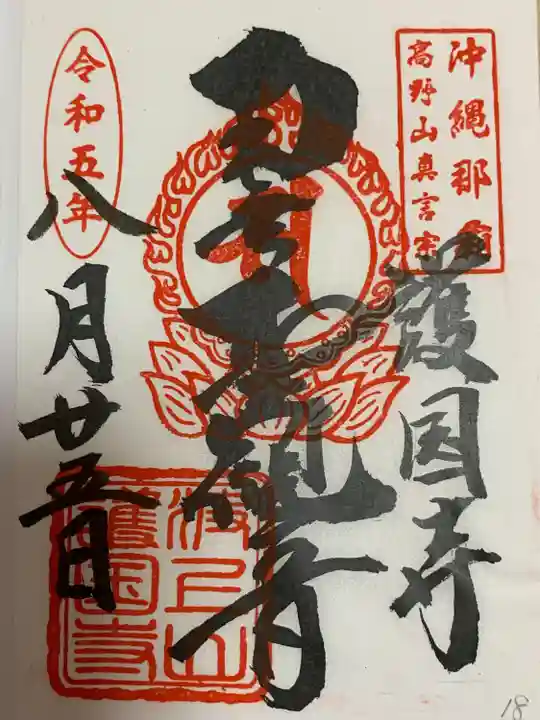 沖縄那覇
高野山真言宗
護国寺
観音
令和五年
八月廿五日
波上山
護国寺
18